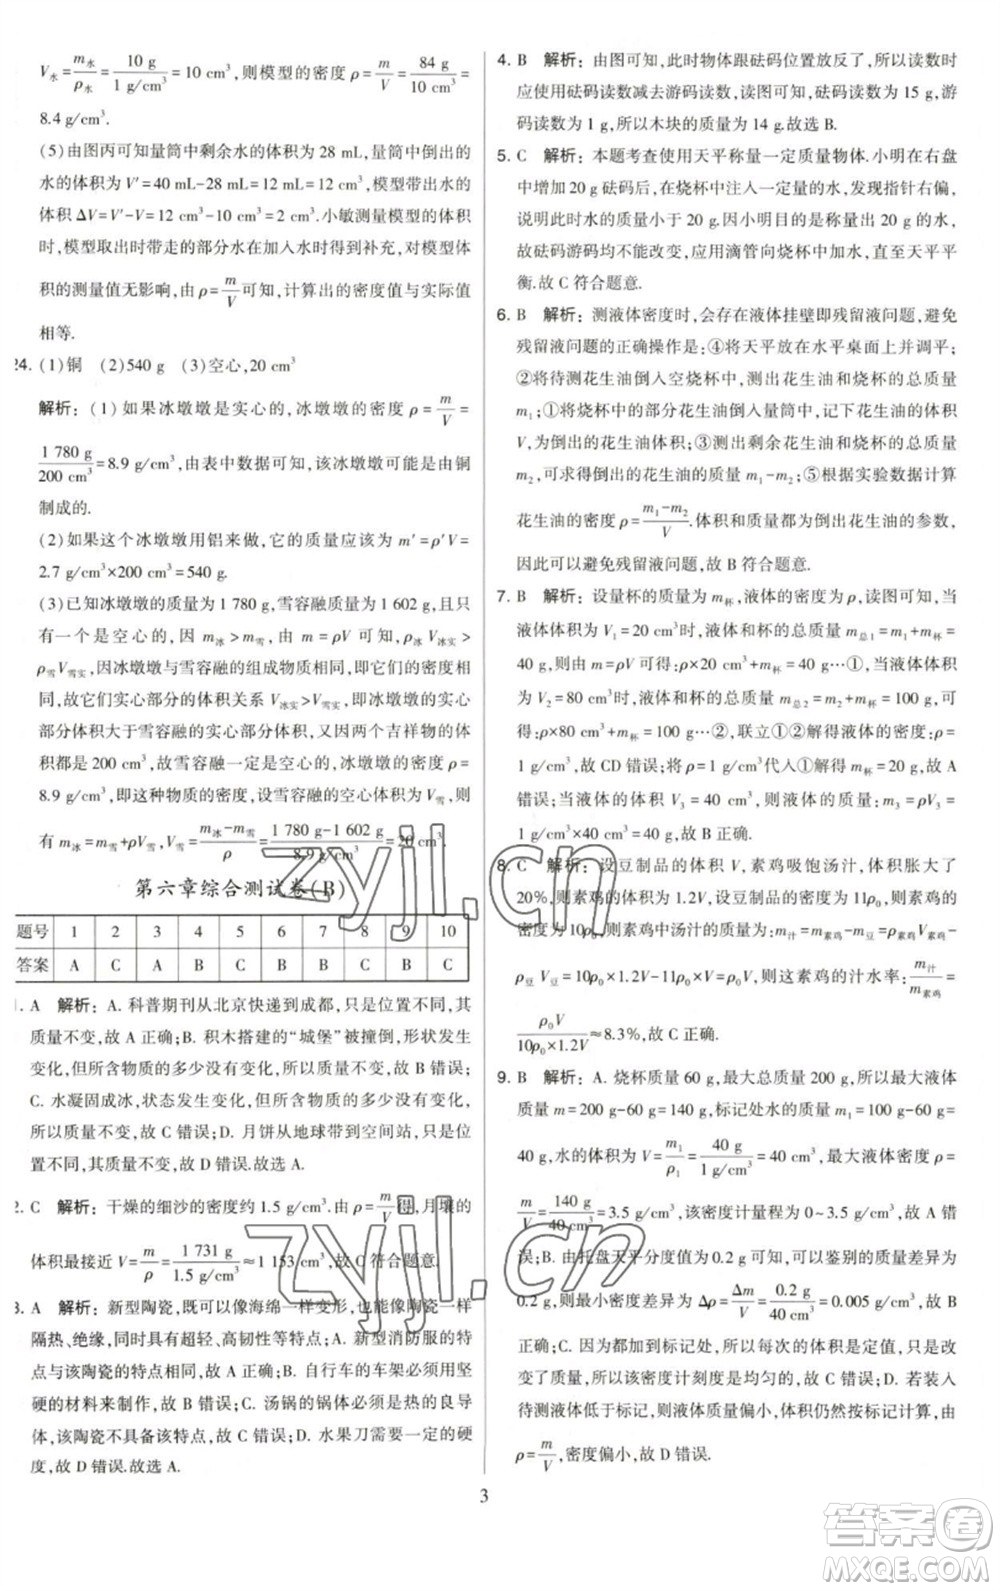 V水=m水/ρ水=10 g/1 g/cm³=10 cm³,则模型的密度 ρ=m/V=84 g/10 cm³=
8.4 g/cm³.
(5)由图丙可知量筒中剩余水的体积为 28 mL,量筒中倒出的
水的体积为 V'=40 mL-28 mL=12 mL=12 cm³,模型带出水的
体积 ΔV=V'-V=12 cm³-10 cm³=2 cm³.小敏测量模型的体积
时,模型取出时带走的部分水在加入水时得到补充,对模型体
积的测量值无影响,由 ρ=m/V可知,计算出的密度值与实际值
相等.
24. (1)铜 (2)540 g (3)空心,20 cm³
解析:(1)如果冰墩墩是实心的,冰墩墩的密度 ρ=m/V=
1 780 g/200 cm³=8.9 g/cm³,由表中数据可知,该冰墩墩可能是由铜
制成的.
(2)如果这个冰墩墩用铝来做,它的质量应为 m'=ρ'V=
2.7 g/cm³×200 cm³=540 g.
(3)已知冰墩墩的质量为 1 780 g,雪容融质量为 1 602 g,且只
有一个是空心的,因 m冰>m雪,由 m=ρV 可知,ρ冰V冰实>
ρ雪V雪实,因冰墩墩与雪容融的组成物质相同,即密度相同,
故它们实心部分的体积关系 V冰实>V雪实,即冰墩墩的实心
部分体积大于雪容融的实心部分体积,而这两个吉祥物的体
积都是 200 cm³,故雪容融一定是空心的.冰墩墩的密度 ρ=
8.9 g/cm³,即这种物质的密度,设雪容融的空心体积为 V雪,则
有 m冰=m雪+ρV雪,V雪=m冰-m雪/ρ=1 780 g-1 602 g/8.9 g/cm³=20 cm³.
第六章综合测试卷(B)
题号 1 2 3 4 5 6 7 8 9 10
答案 A C A B C B B C B C
1. A 解析:A. 科普期刊从北京快递到成都,只是位置不同,其
质量不变,故 A 正确;B. 积木搭建的“城堡”被撞倒,形状发生
变化,所含物质的多少没有变化,所以质量不变,故 B 错误;
C. 水凝固成冰,状态发生变化,但所含物质的多少没有变化,
所以质量不变,故 C 错误;D. 月饼从地球带到空间站,只是位
置不同,其质量不变,故 D 错误.故选 A.
2. C 解析:干燥的细沙的密度约 1.5 g/cm³.由 ρ=m/V得,月壤的
体积最接近 V=m/ρ=1 731 g/1.5 g/cm³≈1 153 cm³,故 C 符合题意.
3. A 解析:新型陶瓷,既可以像海绵一样变形,也能像陶瓷一样
隔热、绝缘,同时具有超轻、高韧性等特点;A. 新型消防服的特
点与该陶瓷的特点相符,故 A 正确;B. 自行车的车架必须用坚
硬的材料来制作,故 B 错误;C. 汤锅的锅体必须是热的良导
体,该陶瓷不具备该特点,故 C 错误;D. 水果刀需要一定的硬
度,故 D 错误.故选 A.
4. B 解析:由图可知,此时物体跟砝码位置放反了,所以读数时
应使用砝码读数减去游码读数,读图可知,砝码读数为 15 g,游
码读数为 1 g,所以木块的质量为 14 g.故选 B.
5. C 解析:本题考查使用天平称量一定质量物体.小明在右盘
中增加 20 g 砝码后,在烧杯中注入一定量的水,发现指针右偏,
说明此时水的质量小于 20 g.因小明目的是称量出 20 g 的水,
故砝码游码均不能改变,应用滴管向烧杯中加水,直至天平平
衡.故 C 符合题意.
6. B 解析:测液体密度时,会存在液体挂壁即残留液问题,避免
残留液问题的正确操作是:④将天平放在水平桌面上,调平;
②将待测花生油倒入空烧杯中,测出花生油和烧杯的总质量
m₁;①将烧杯中的部分花生油倒入量筒中,记下花生油的体积
V,为倒出的花生油体积;③测出剩余花生油和烧杯的总质量
m₂,可求得倒出的花生油的质量 m₁-m₂;⑤根据实验数据计算
花生油的密度 ρ=m₁-m₂/V.体积和质量都为倒出花生油的参数,
因此可以避免残留液问题,故 B 符合题意.
7. B 解析:设量杯的质量为 m杯,液体的密度为 ρ,读图可知,当
液体体积为 V₁=20 cm³时,液体和杯的总质量 m总1=m₁+m杯=
40 g,由 m=ρV 可得:ρ×20 cm³+m杯=40 g…①,当液体体积
为 V₂=80 cm³时,液体和杯的总质量 m总2=m₂+m杯=100 g,可
得:ρ×80 cm³+m杯=100 g…②,联立①②解得液体的密度:ρ=
1 g/cm³,故 CD 错误;将 ρ=1 g/cm³代入①解得 m杯=20 g,故 A
错误;当液体的体积 V₃=40 cm³,则液体的质量:m₃=ρV₃=
1 g/cm³×40 cm³=40 g,故 B 正确.
8. C 解析:设豆制品的体积 V,素鸡吸饱汤汁,体积增大了
20%,则素鸡的体积为 1.2V,设豆制品的密度为 10ρ₀,素鸡的
密度为 10ρ₀,则素鸡中汤汁的质量:m汁=m素鸡-m豆=ρ素鸡V素鸡-
ρ豆V豆=10ρ₀×1.2V-10ρ₀V=2ρ₀V,所以这素鸡的汁水率:m汁/m素鸡=
ρ₀V/10ρ₀×1.2V≈8.3%,故 C 正确.
9. B 解析:A. 烧杯质量 60 g,最大总质量 200 g,所以最大液体
质量 m=200 g-60 g=140 g,标记处水的质量 m₁=100 g-60 g=
40 g,水的体积 V=m₁/ρ₁=40 g/1 g/cm³=40 cm³,最大液体密度 ρ=
m/V=140 g/40 cm³=3.5 g/cm³,该密度计量程为 0~3.5 g/cm³,故 A 错
误;B. 由托盘天平分度值为 0.2 g 可知,可以鉴别的质量差异为
0.2 g,则最小密度差异为 Δρ=Δm/V=0.2 g/40 cm³=0.005 g/cm³,故 B
正确;C. 因为都加到标记处,所以每次的体积是定值,由 ρ=
m/V,该密度计刻度是均匀的,故 C 错误;D. 若装入
待测液体低于标记,则液体质量偏小,体积仍然按标记计算,由
ρ=m/V,密度偏小,故 D 错误.
3
zyjl.cn
zyjl.cn
答案圈
MXQE.COM